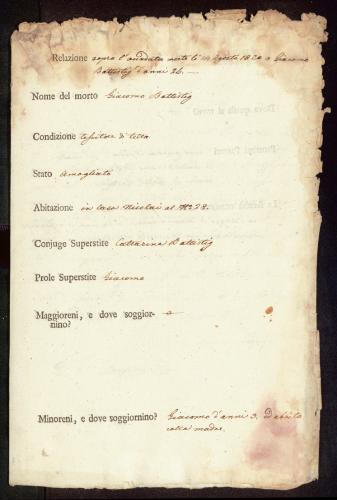 Relazione sopra l'andata morte li 14 Agosto 1820 o Giacomo
Battistig d'anni 26.
Nome del morto Giacomo Battistig
Condizione tessitore di tella
Stato Amogliato
Abitazione in casa Nicolai al N° 58.
Conjuge Superstite Cattarina Battistig
Prole Superstite Giacomo
Maggioreni, e dove soggior-
nino?
Minoreni, e dove soggiornino? Giacomo d'anni 3. ed abita
colla madre.